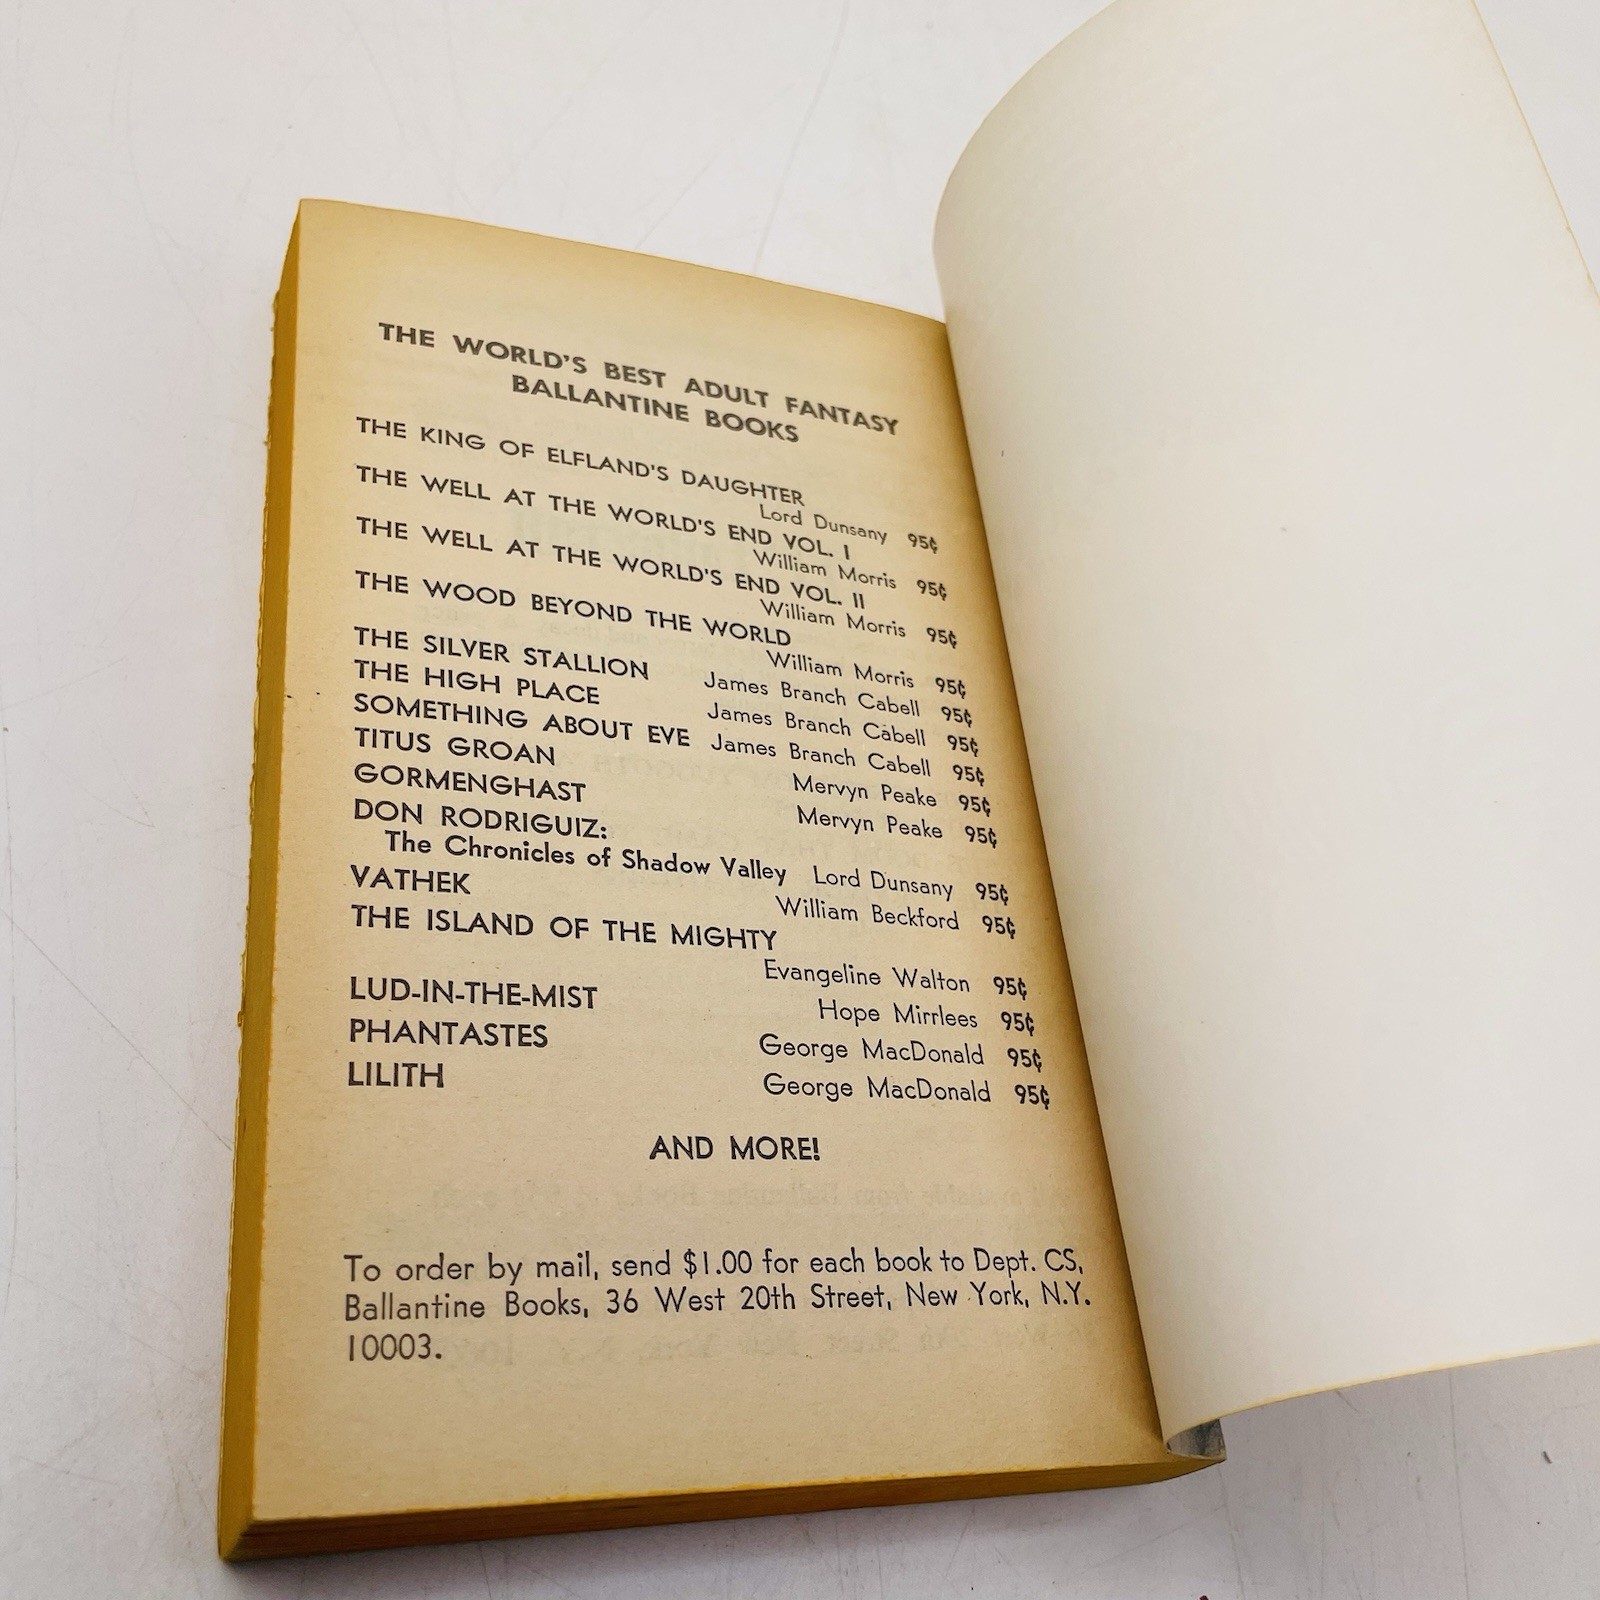 THE WORLD'S BEST ADULT FANTASY
BALLANTINE BOOKS
THE KING OF ELFLAND'S DAUGHTER
Lord Dunsany 95¢
THE WELL AT THE WORLD'S END VOL. I
William Morris 95¢
THE WELL AT THE WORLD'S END VOL. II
William Morris 95¢
THE WOOD BEYOND THE WORLD
William Morris 95¢
THE SILVER STALLION James Branch Cabell 95¢
THE HIGH PLACE James Branch Cabell 95¢
SOMETHING ABOUT EVE James Branch Cabell 95¢
TITUS GROAN Mervyn Peake 95¢
GORMENGHAST Mervyn Peake 95¢
DON RODRIGUIZ:
The Chronicles of Shadow Valley Lord Dunsany 95¢
VATHEK William Beckford 95¢
THE ISLAND OF THE MIGHTY
Evangeline Walton 95¢
LUD-IN-THE-MIST Hope Mirrlees 95¢
PHANTASTES George MacDonald 95¢
LILITH George MacDonald 95¢
AND MORE!
To order by mail, send $1.00 for each book to Dept. CS,
Ballantine Books, 36 West 20th Street, New York, N.Y.
10003.